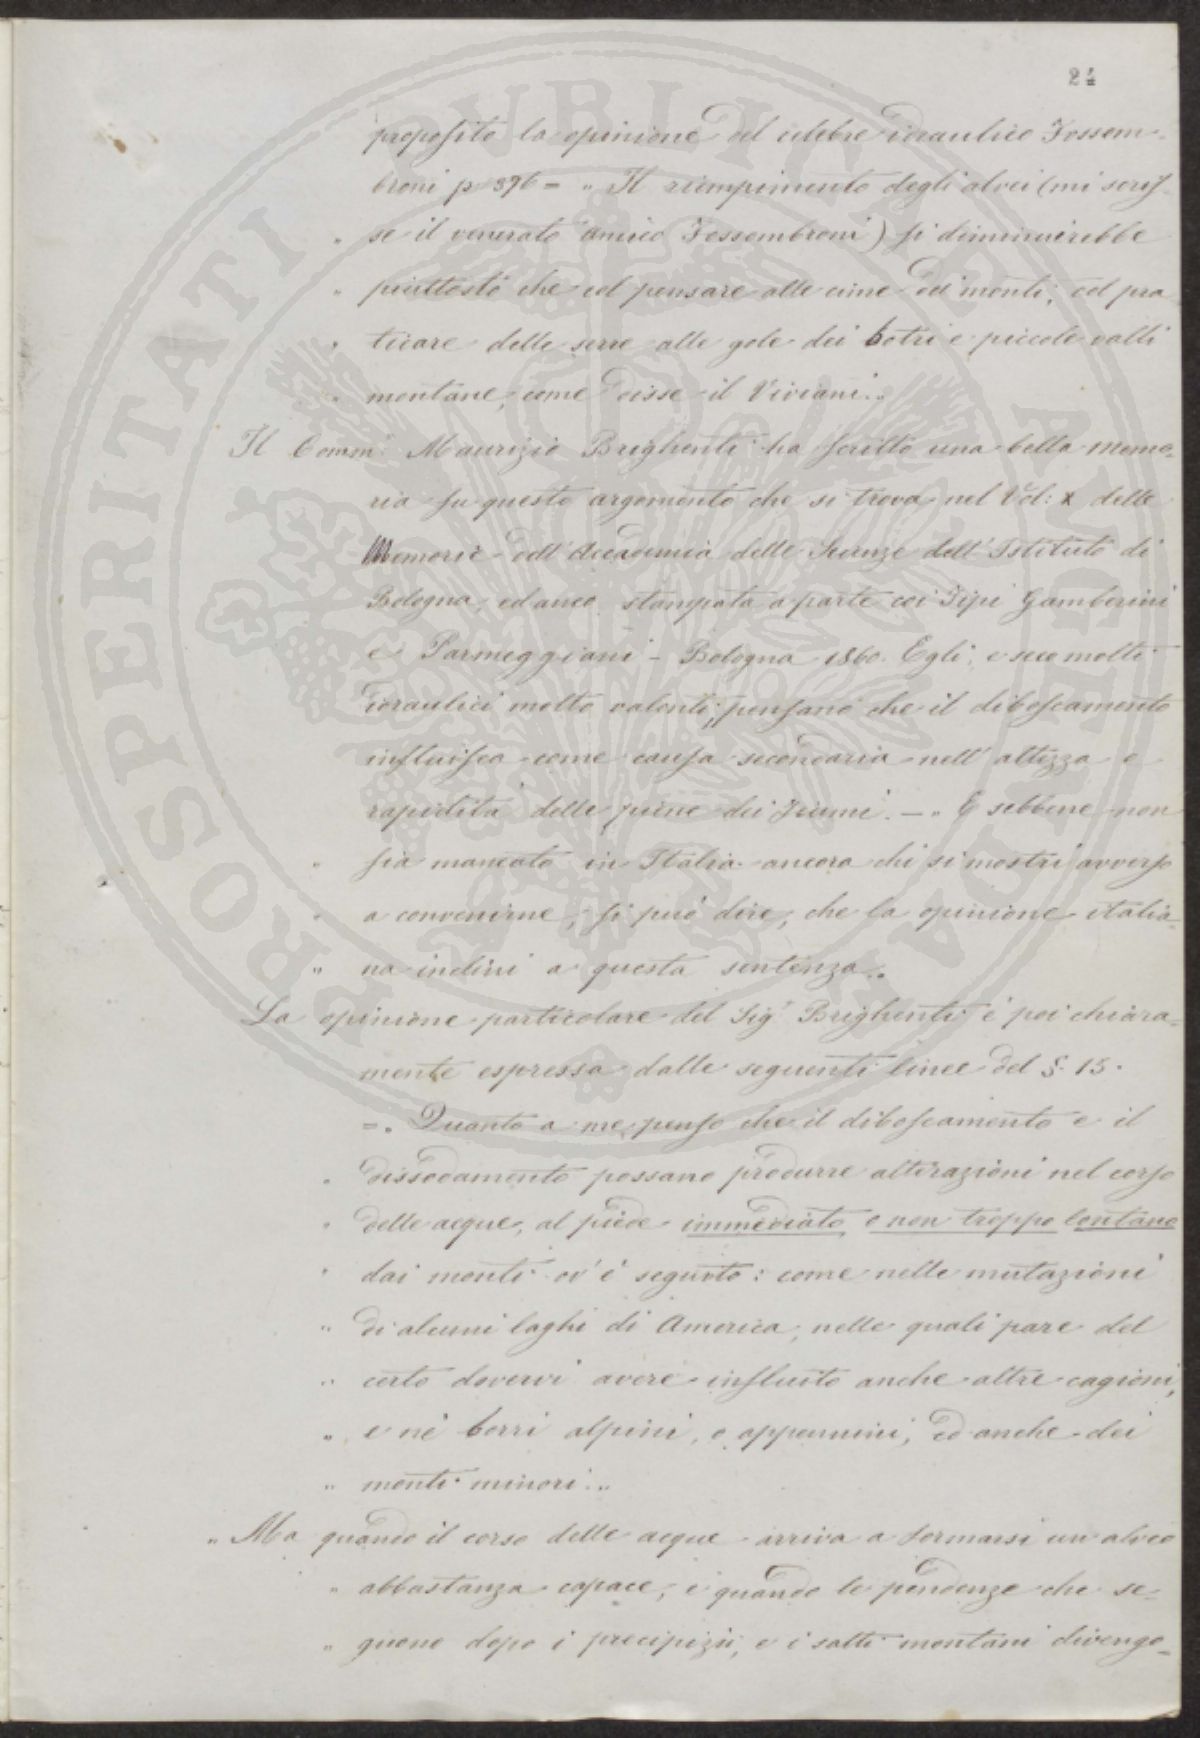 24
proposito la opinione del celebre idraulico Fossom-
broni p 396 = „ Il riempimento degli alvei (mi scris-
„ se il venerato amico Fossombroni) si diminuirebbe
„ piuttosto che col pensare alle cime dei monti, col pra
„ ticare delle serre alle gole dei botri e piccole valli
„ montane, come disse il Viviani.„
Il Comm.r Maurizio Brighenti ha scritto una bella memo-
ria su questo argomento che si trova nel Vol: X delle
Memorie dell'Accademia delle Scienze dell'Istituto di
Bologna, ed anco stampata a parte coi Tipi Gamberini
e Parmeggiani - Bologna 1860. Egli, e seco molti
idraulici molto valenti, pensano che il diboscamento
influisca come causa secondaria nell'altezza e
rapidità delle piene dei fiumi. — „ E sebbene non
„ sia mancato in Italia ancora chi si mostri avverso
„ a convenirne, si può dire, che la opinione italia-
„ na inclini a questa sentenza.„
La opinione particolare del Sig.r Brighenti è poi chiara-
mente espressa dalle seguenti linee del §. 15.
=„ Quanto a me penso che il diboscamento e il
„ dissodamento possano produrre alterazioni nel corso
„ delle acque, al piede immediato o non troppo lontano
„ dai monti ov'è seguito: come nelle mutazioni
„ di alcuni laghi di America, nelle quali pare del
„ certo dovervi avere influito anche altre cagioni,
„ e nè borri alpini, o appennini, ed anche dei
„ monti minori.„
„ Ma quando il corso delle acque arriva a formarsi un alveo
„ abbastanza capace, e quando le pendenze che se-
„ guono dopo i precipizii, e i salti montani divengo-
PROSPERITATI PUBLICAE AUGENDAE